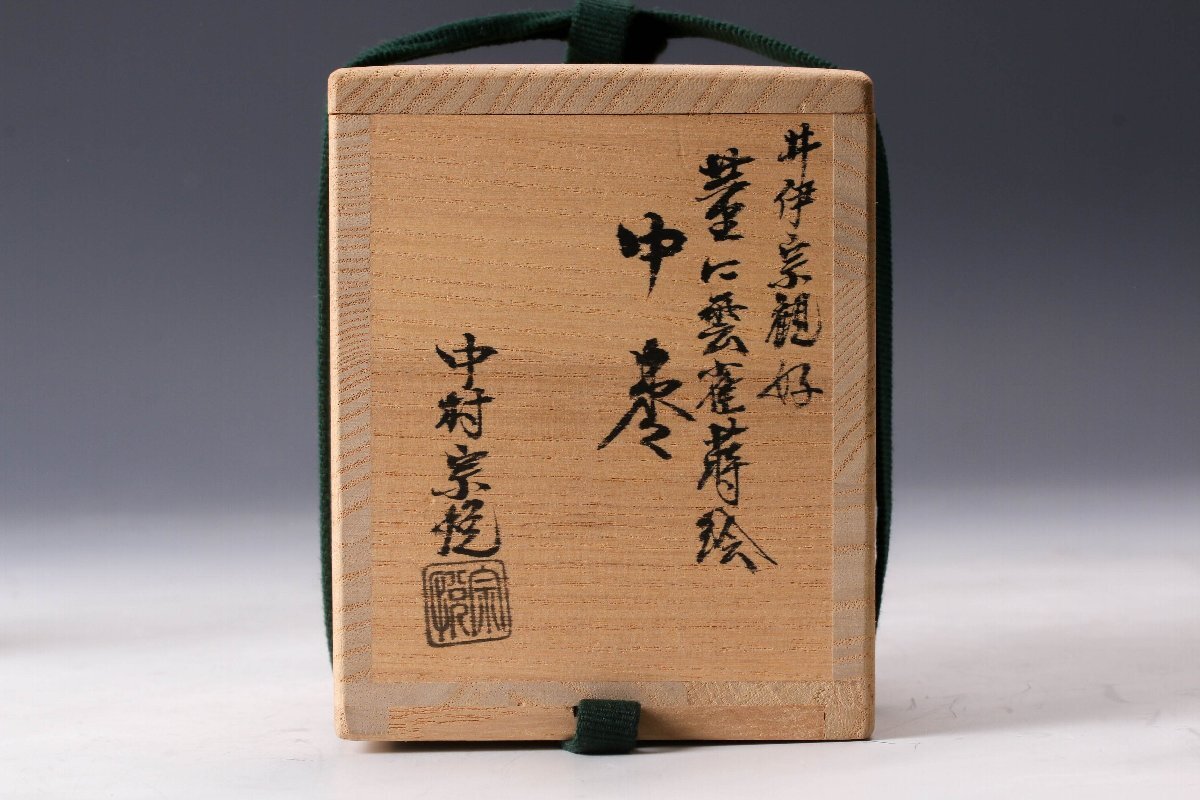 井伊宗観好
菫に雲雀蒔絵
中棗
中村宗悦
宗悦